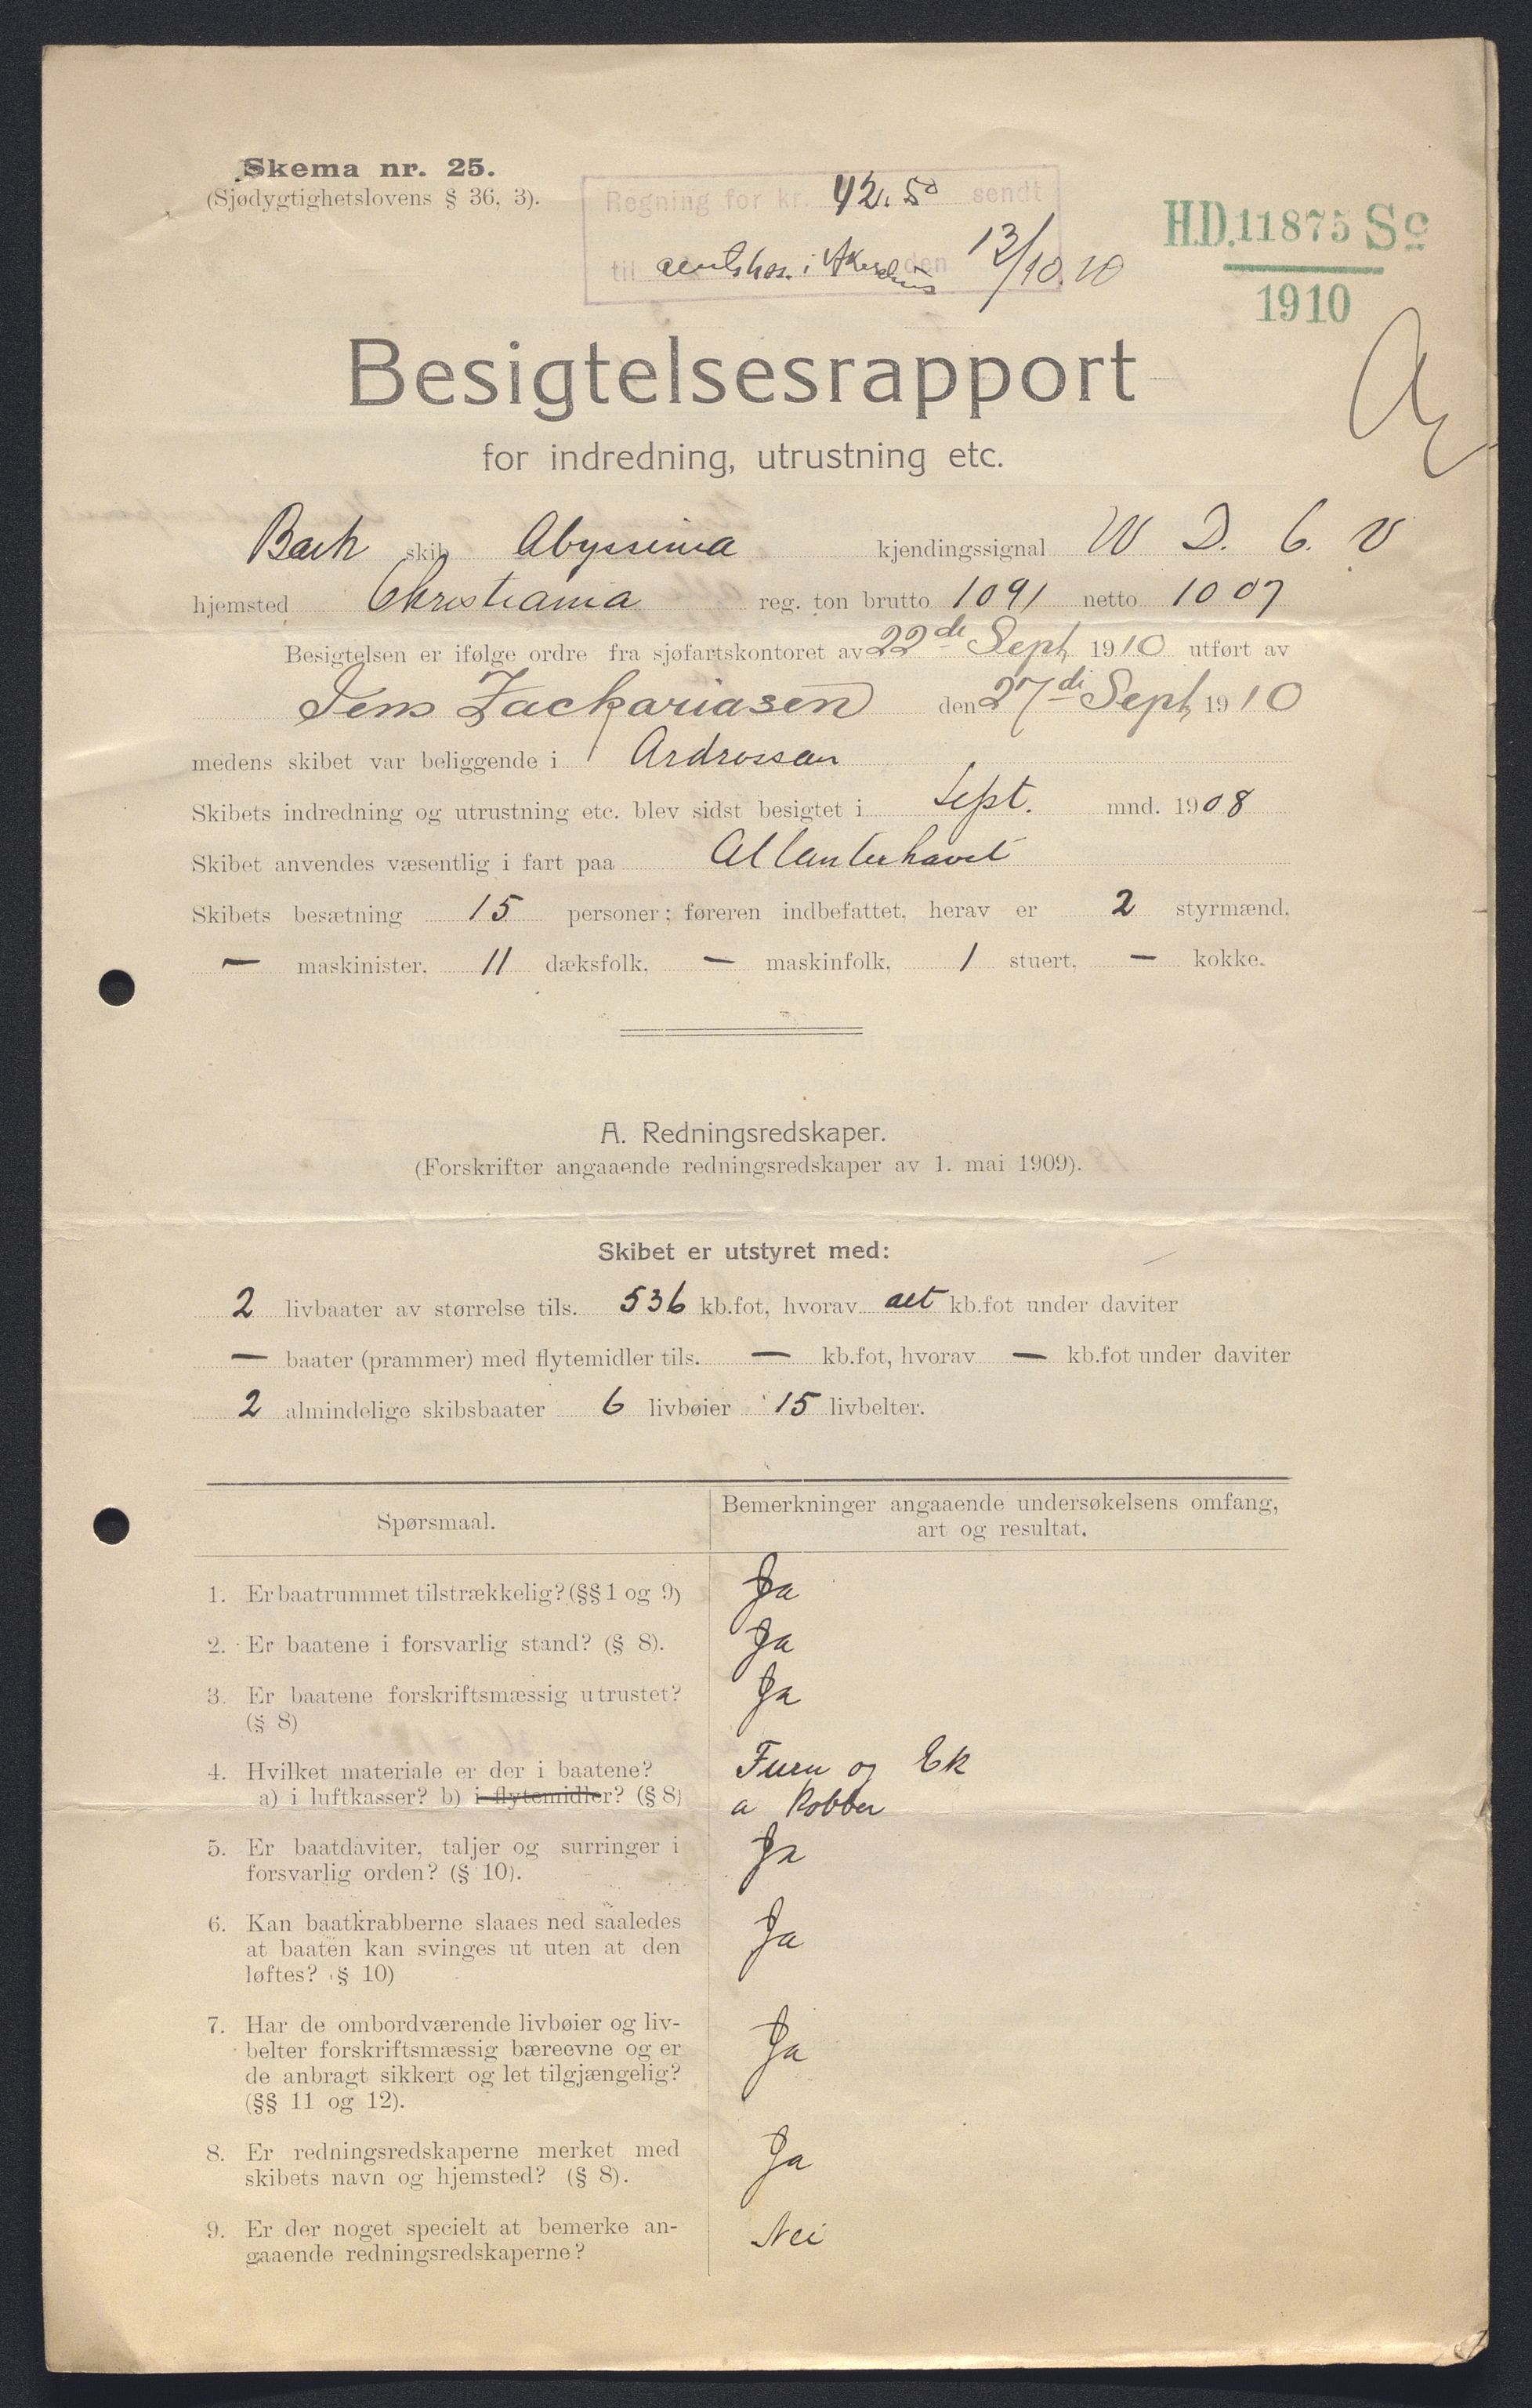 Skema nr. 25.
(Sjødygtighetslovens § 36, 3).
Regning for kr. 42.50 sendt
til amtskas. i Akershus den 13/10.10
H.D. 11875 Sc
1910
Besigtelsesrapport
for indredning, utrustning etc.
Bark skib Abyssinia kjendingssignal W D. G. V
hjemsted Christiania reg. ton brutto 1091 netto 1007
Besigtelsen er ifølge ordre fra sjøfartskontoret av 22de Sept 1910 utført av
Jens Zackariasen den 27de Sept 1910
medens skibet var beliggende i Ardrossan
Skibets indredning og utrustning etc. blev sidst besigtet i Sept. mnd. 1908
Skibet anvendes væsentlig i fart paa Atlanterhavet
Skibets besætning 15 personer; føreren indbefattet, herav er 2 styrmænd,
— maskinister, 11 dæksfolk, — maskinfolk, 1 stuert, — kokke.
A. Redningsredskaper.
(Forskrifter angaaende redningsredskaper av 1. mai 1909).
Skibet er utstyret med:
2 livbaater av størrelse tils. 536 kb.fot, hvorav alt kb.fot under daviter
— baater (prammer) med flytemidler tils. — kb.fot, hvorav — kb.fot under daviter
2 almindelige skibsbaater 6 livbøier 15 livbelter.
Spørsmaal.
Bemerkninger angaaende undersøkelsens omfang,
art og resultat.
1. Er baatrummet tilstrækkelig? (§§ 1 og 9) Ja
2. Er baatene i forsvarlig stand? (§ 8). Ja
3. Er baatene forskriftsmæssig utrustet? Ja
(§ 8)
4. Hvilket materiale er der i baatene? Furu og Ek
a) i luftkasser? b) i flytemidler? (§ 8) a Kobber
5. Er baatdaviter, taljer og surringer i Ja
forsvarlig orden? (§ 10).
6. Kan baatkrabberne slaaes ned saaledes
at baaten kan svinges ut uten at den Ja
løftes? § 10)
7. Har de ombordværende livbøier og liv-
belter forskriftsmæssig bæreevne og er Ja
de anbragt sikkert og let tilgjængelig?
(§§ 11 og 12).
8. Er redningsredskaperne merket med Ja
skibets navn og hjemsted? (§ 8).
9. Er der noget specielt at bemerke an- Nei
gaaende redningsredskaperne?